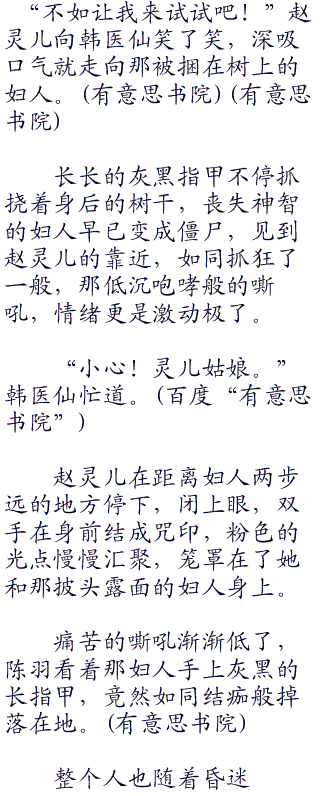 “不如让我来试试吧！”赵
灵儿向韩医仙笑了笑，深吸
口气就走向那被捆在树上的
妇人。(有意思书院)(有意思
书院)
长长的灰黑指甲不停抓
挠着身后的树干，丧失神智
的妇人早已变成僵尸，见到
赵灵儿的靠近，如同抓狂了
一般，那低沉咆哮般的嘶
吼，情绪更是激动极了。
“小心！灵儿姑娘。”
韩医仙忙道。(百度“有意思
书院”)
赵灵儿在距离妇人两步
远的地方停下，闭上眼，双
手在身前结成咒印，粉色的
光点慢慢汇聚，笼罩在了她
和那披头露面的妇人身上。
痛苦的嘶吼渐渐低了，
陈羽看着那妇人手上灰黑的
长指甲，竟然如同结痂般掉
落在地。(有意思书院)
整个人也随着昏迷